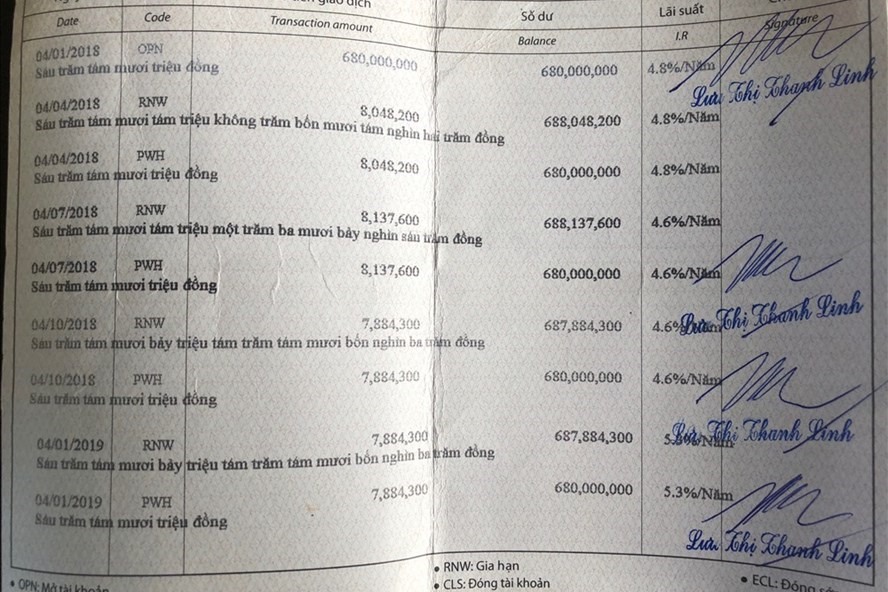 giao dịch Số dư Lãi suất
Date Code Transaction amount Balance I.R Signature
04/01/2018 OPN 680,000,000 680,000,000 4.8%/Năm
Sáu trăm tám mươi triệu đồng
Lưu Thị Thanh Linh
04/04/2018 RNW 8,048,200 688,048,200 4.8%/Năm
Sáu trăm tám mươi tám triệu không trăm bốn mươi tám nghìn hai trăm đồng
04/04/2018 PWH 8,048,200 680,000,000 4.8%/Năm
Sáu trăm tám mươi triệu đồng
04/07/2018 RNW 8,137,600 688,137,600 4.6%/Năm
Sáu trăm tám mươi tám triệu một trăm ba mươi bảy nghìn sáu trăm đồng
04/07/2018 PWH 8,137,600 680,000,000 4.6%/Năm
Sáu trăm tám mươi triệu đồng
Lưu Thị Thanh Linh
04/10/2018 RNW 7,884,300 687,884,300 4.6%/Năm
Sáu trăm tám mươi bảy triệu tám trăm tám mươi bốn nghìn ba trăm đồng
04/10/2018 PWH 7,884,300 680,000,000 4.6%/Năm
Sáu trăm tám mươi triệu đồng
Lưu Thị Thanh Linh
04/01/2019 RNW 7,884,300 687,884,300
Sáu trăm tám mươi bảy triệu tám trăm tám mươi bốn nghìn ba trăm đồng
04/01/2019 PWH 7,884,300 680,000,000 5.3%/Năm
Sáu trăm tám mươi triệu đồng
Lưu Thị Thanh Linh
• OPN: Mở tài khoản • RNW: Gia hạn • ECL: Đóng
• CLS: Đóng tài khoản